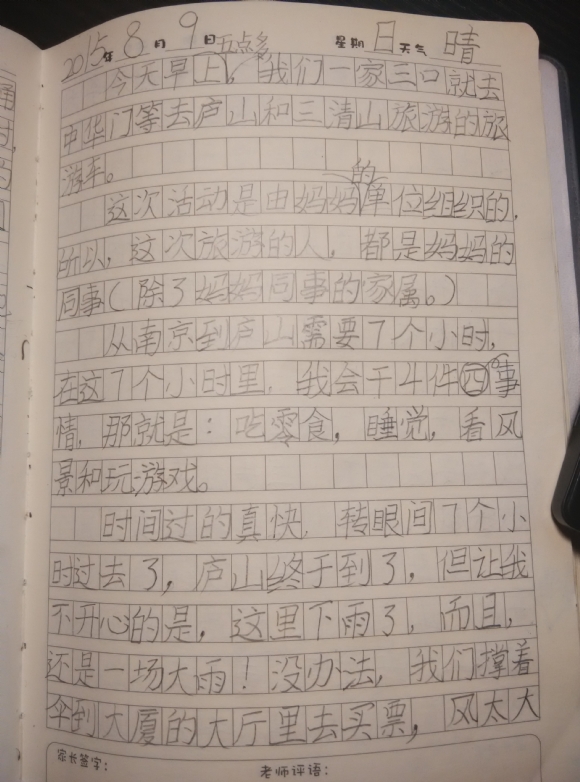 2015年8月9日 星期 日 天气 晴
五点多
今天早上,我们一家三口就去
中华门等去庐山和三清山旅游的旅
游车。
的
这次活动是由妈妈单位组织的,
所以,这次旅游的人,都是妈妈的
同事(除了妈妈同事的家属。)
从南京到庐山需要7个小时,
在这7个小时里,我会干4件四事
情,那就是:吃零食,睡觉,看风
景和玩游戏。
时间过的真快,转眼间7个小
时过去了,庐山终于到了,但让我
不开心的是,这里下雨了,而且,
还是一场大雨!没办法,我们撑着
伞到大厦的大厅里去买票,风太大
家长签字:
老师评语: